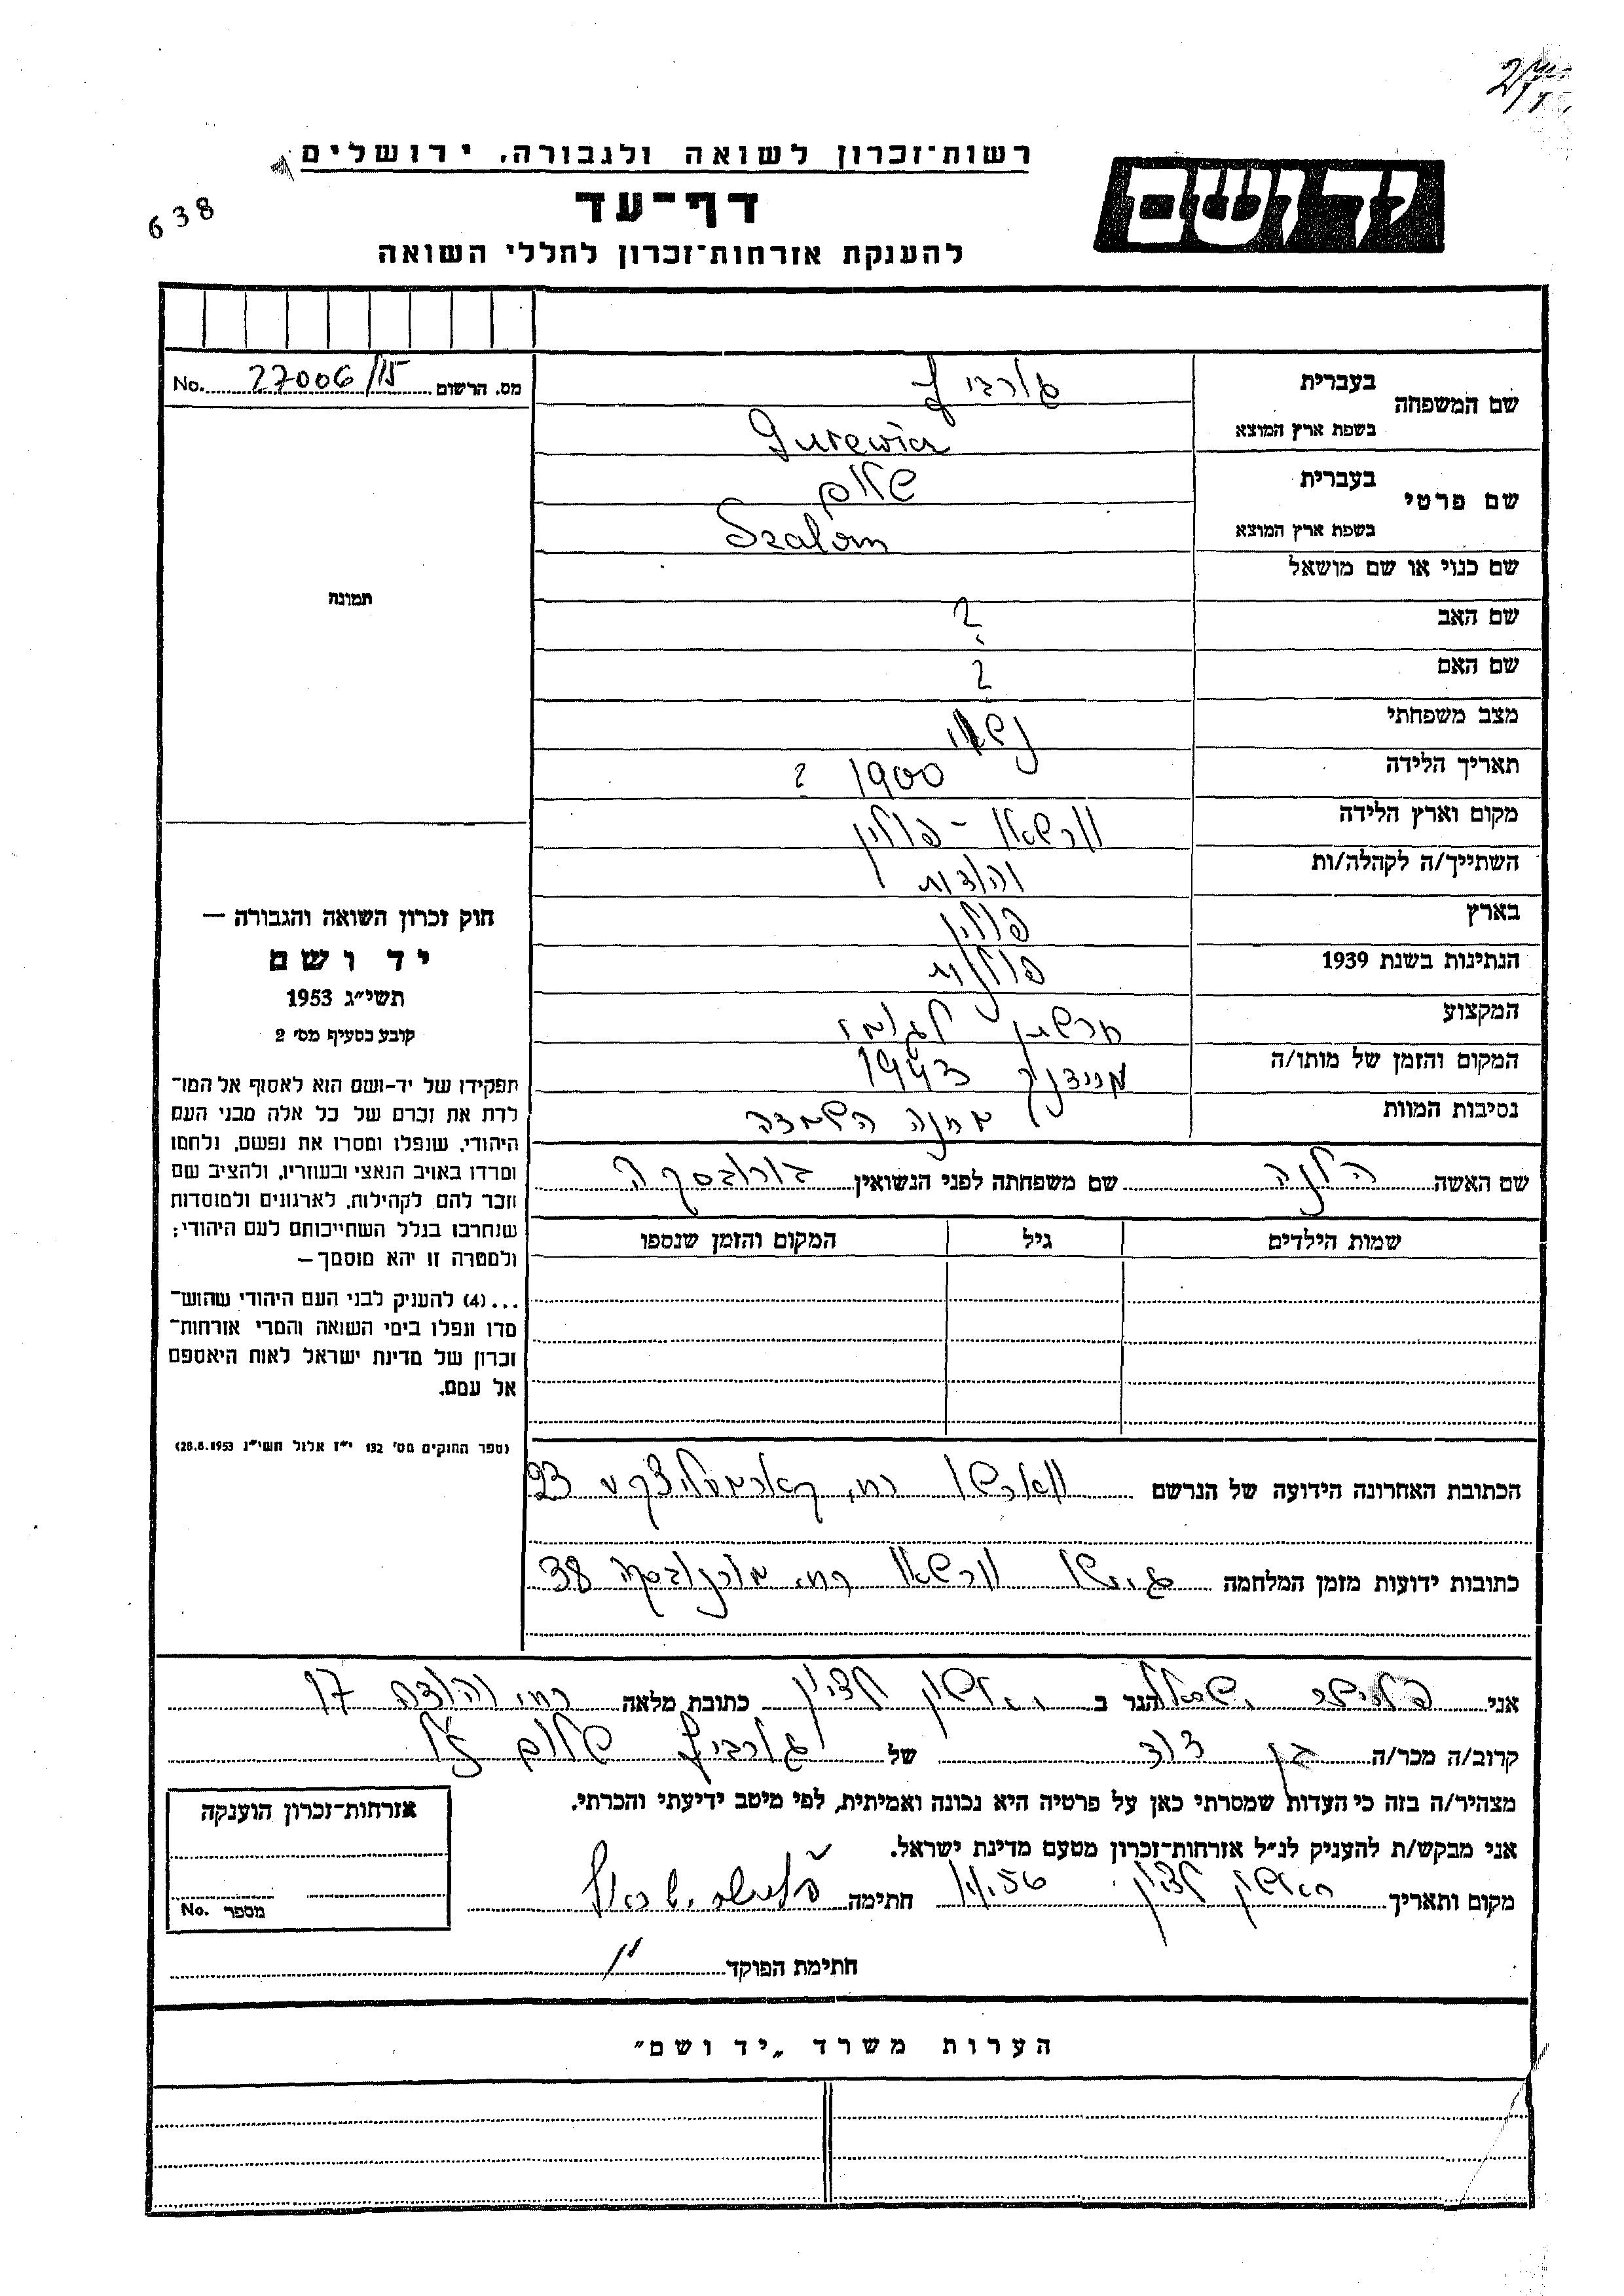 רשות־זכרון לשואה ולגבורה, ירושלים
דף־עד
להענקת אזרחות־זכרון לחללי השואה
יד ושם
638
מס. הרשום 27006/15 No.
שם המשפחה
בעברית גורביץ
בשפת ארץ המוצא Gurewicz
שם פרטי
בעברית שלום
בשפת ארץ המוצא Szalom
שם כנוי או שם מושאל
שם האב ?
שם האם ?
מצב משפחתי נשוי
תאריך הלידה 1900 ?
מקום וארץ הלידה ורשאו - פולין
השתייך/ה לקהלה/ות יהודית
בארץ פולין
הנתינות בשנת 1939 פולנית
המקצוע חרשתן לגומי
המקום והזמן של מותו/ה מיידנק 1943
נסיבות המוות מחנה השמדה
שם האשה הלנה שם משפחתה לפני הנשואין
שמות הילדים גיל המקום והזמן שנספו
הכתובת האחרונה הידועה של הנרשם ווארשו רח. קארמעליצקע 23
כתובות ידועות מזמן המלחמה גיטו ורשאו רח. מורנובסקה 38
תמונה
חוק זכרון השואה והגבורה —
יד ושם
תשי״ג 1953
קובע בסעיף מס׳ 2
תפקידו של יד-ושם הוא לאסוף אל המו־
לדת את זכרם של כל אלה מבני העם
היהודי, שנפלו ומסרו את נפשם, נלחמו
ומרדו באויב הנאצי ובעוזריו, ולהציב שם
וזכר להם לקהילות, לארגונים ולמוסדות
שנחרבו בגלל השתייכותם לעם היהודי;
ולמטרה זו יהא מוסמך —
...(4) להעניק לבני העם היהודי שהוש־
מדו ונפלו בימי השואה והמרי אזרחות־
זכרון של מדינת ישראל לאות היאספם
אל עמם.
(ספר החוקים מס׳ 132 י״ז אלול תשי״ג 28.8.1953)
אני ישראל הגר ב ראשון לציון כתובת מלאה רח׳ יהודה 17
קרוב/ה מכר/ה בן דוד של גורביץ שלום ז״ל
מצהיר/ה בזה כי העדות שמסרתי כאן על פרטיה היא נכונה ואמיתית, לפי מיטב ידיעתי והכרתי.
אני מבקש/ת להעניק לנ״ל אזרחות־זכרון מטעם מדינת ישראל.
מקום ותאריך ראשון לציון חתימה ישראל
חתימת הפוקד
אזרחות־זכרון הוענקה
מספר No.
הערות משרד „יד ושם״